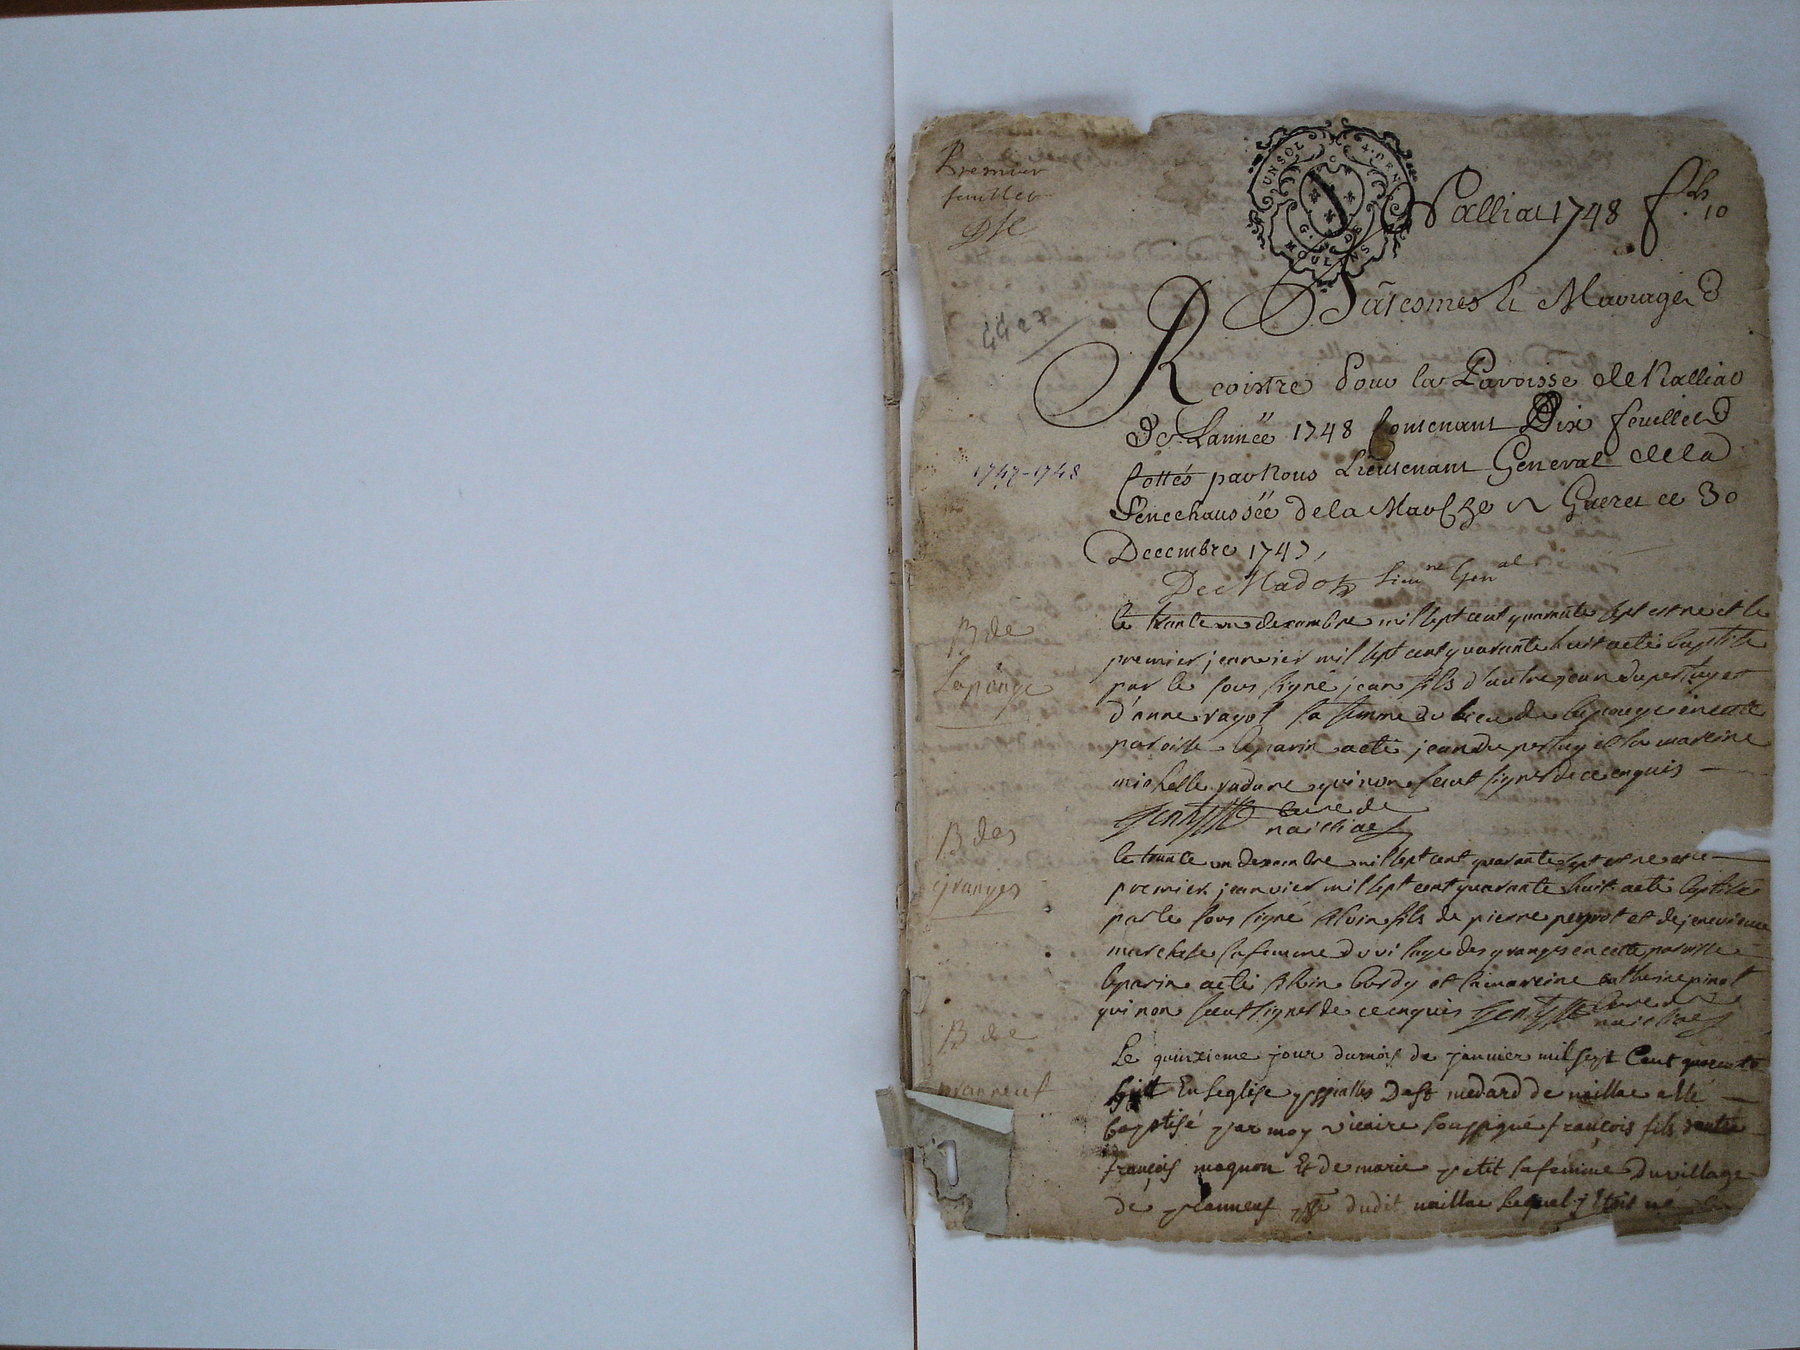 Premier
feuillet
UN SOL
G. DE
MOULINS
Nalliat 1748 f.ts 10
Bâtesmes et Mariages
GG 27
Registre pour la Paroisse de Nalliat
De Lannéé 1748 Contenant Dix feuillets
1747-1748
Cottés par Nous Lieutenant General de la
Senechausséé de la Marche a Gueret ce 30
Decembre 1747,
Lieu.ne Gen.al
B de
Laponge
le trante un dexambre mil sept cent quarante sept est ne et le
premier jeanvier mil sept cent quarante huit a eté baptise
par le sous signé jean fils d'autre jean dupertuy et
d'anne rayot sa femme du lieu de en cette
paroisse le parin a eté jean dupertuy et la mareine
michelle qui non seut signer de ce enquis
curé de
nailliac
B des
granges
le trante un dexambre mil sept cent quarante sept est ne et le
premier jeanvier mil sept cent quarante huit a eté baptisé
par le sous signé silvin fils de pierre peyrot et de jenevieve
sa femme du vilage des granges en cette paroisse
le parin a eté silvin bordy et la mareine catherine pinot
qui non seut signer de ce enquis curé de
nailliac
B de
planneuf
Le quinzieme jour du mois de janvier mil sept Cent quarante
huit En Leglise de st medard de naillac a esté
baptisé par moy vicaire soussigné françois fils d'autre
françois magnon Et de marie petit sa femme du village
de planneuf psse dudit naillac lequel etoit né